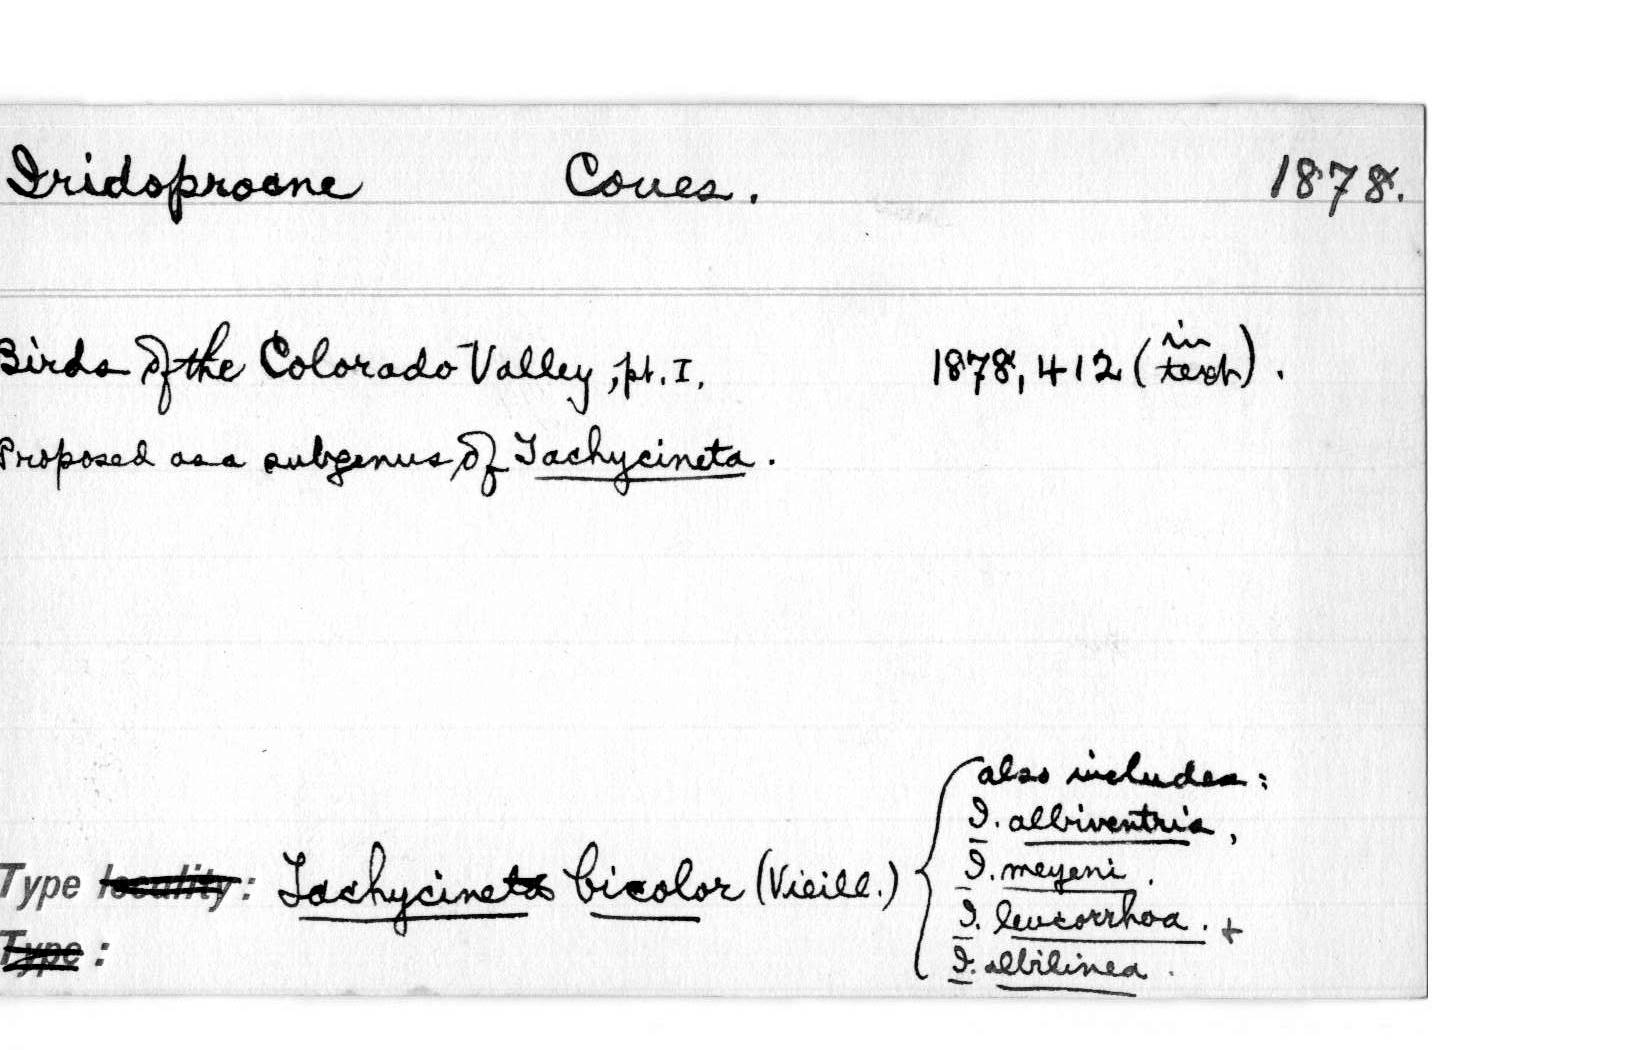 Iridoprocne Coues. 1878.
Birds of the Colorado Valley, pt. I. 1878, 412 (in text).
Proposed as a subgenus of Tachycineta.
also includes:
I. albiventris,
I. meyeni.
Type locality: Tachycineta bicolor (Vieill.)
I. leucorrhoa. +
Type:
I. albilinea.